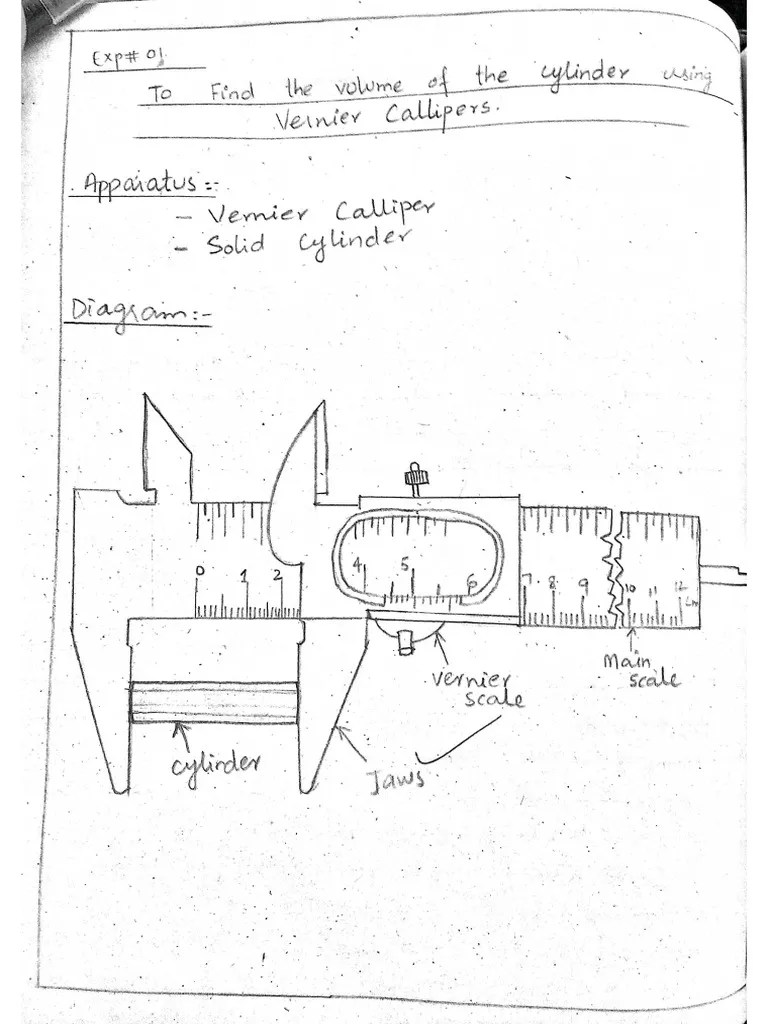 Exp# 01
To Find the volume of the cylinder using
Vernier Callipers.
Apparatus:-
- Vernier Calliper
- Solid Cylinder
Diagram:-
0 1 2
4 5 6
7 8 9 10 11 12
cm
Main scale
Vernier scale
cylinder
Jaws